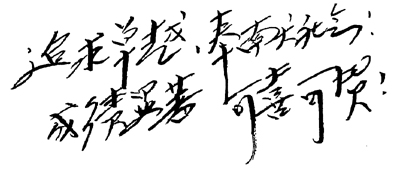 追求卓越,奉献社会!
成绩显著 可喜可贺!